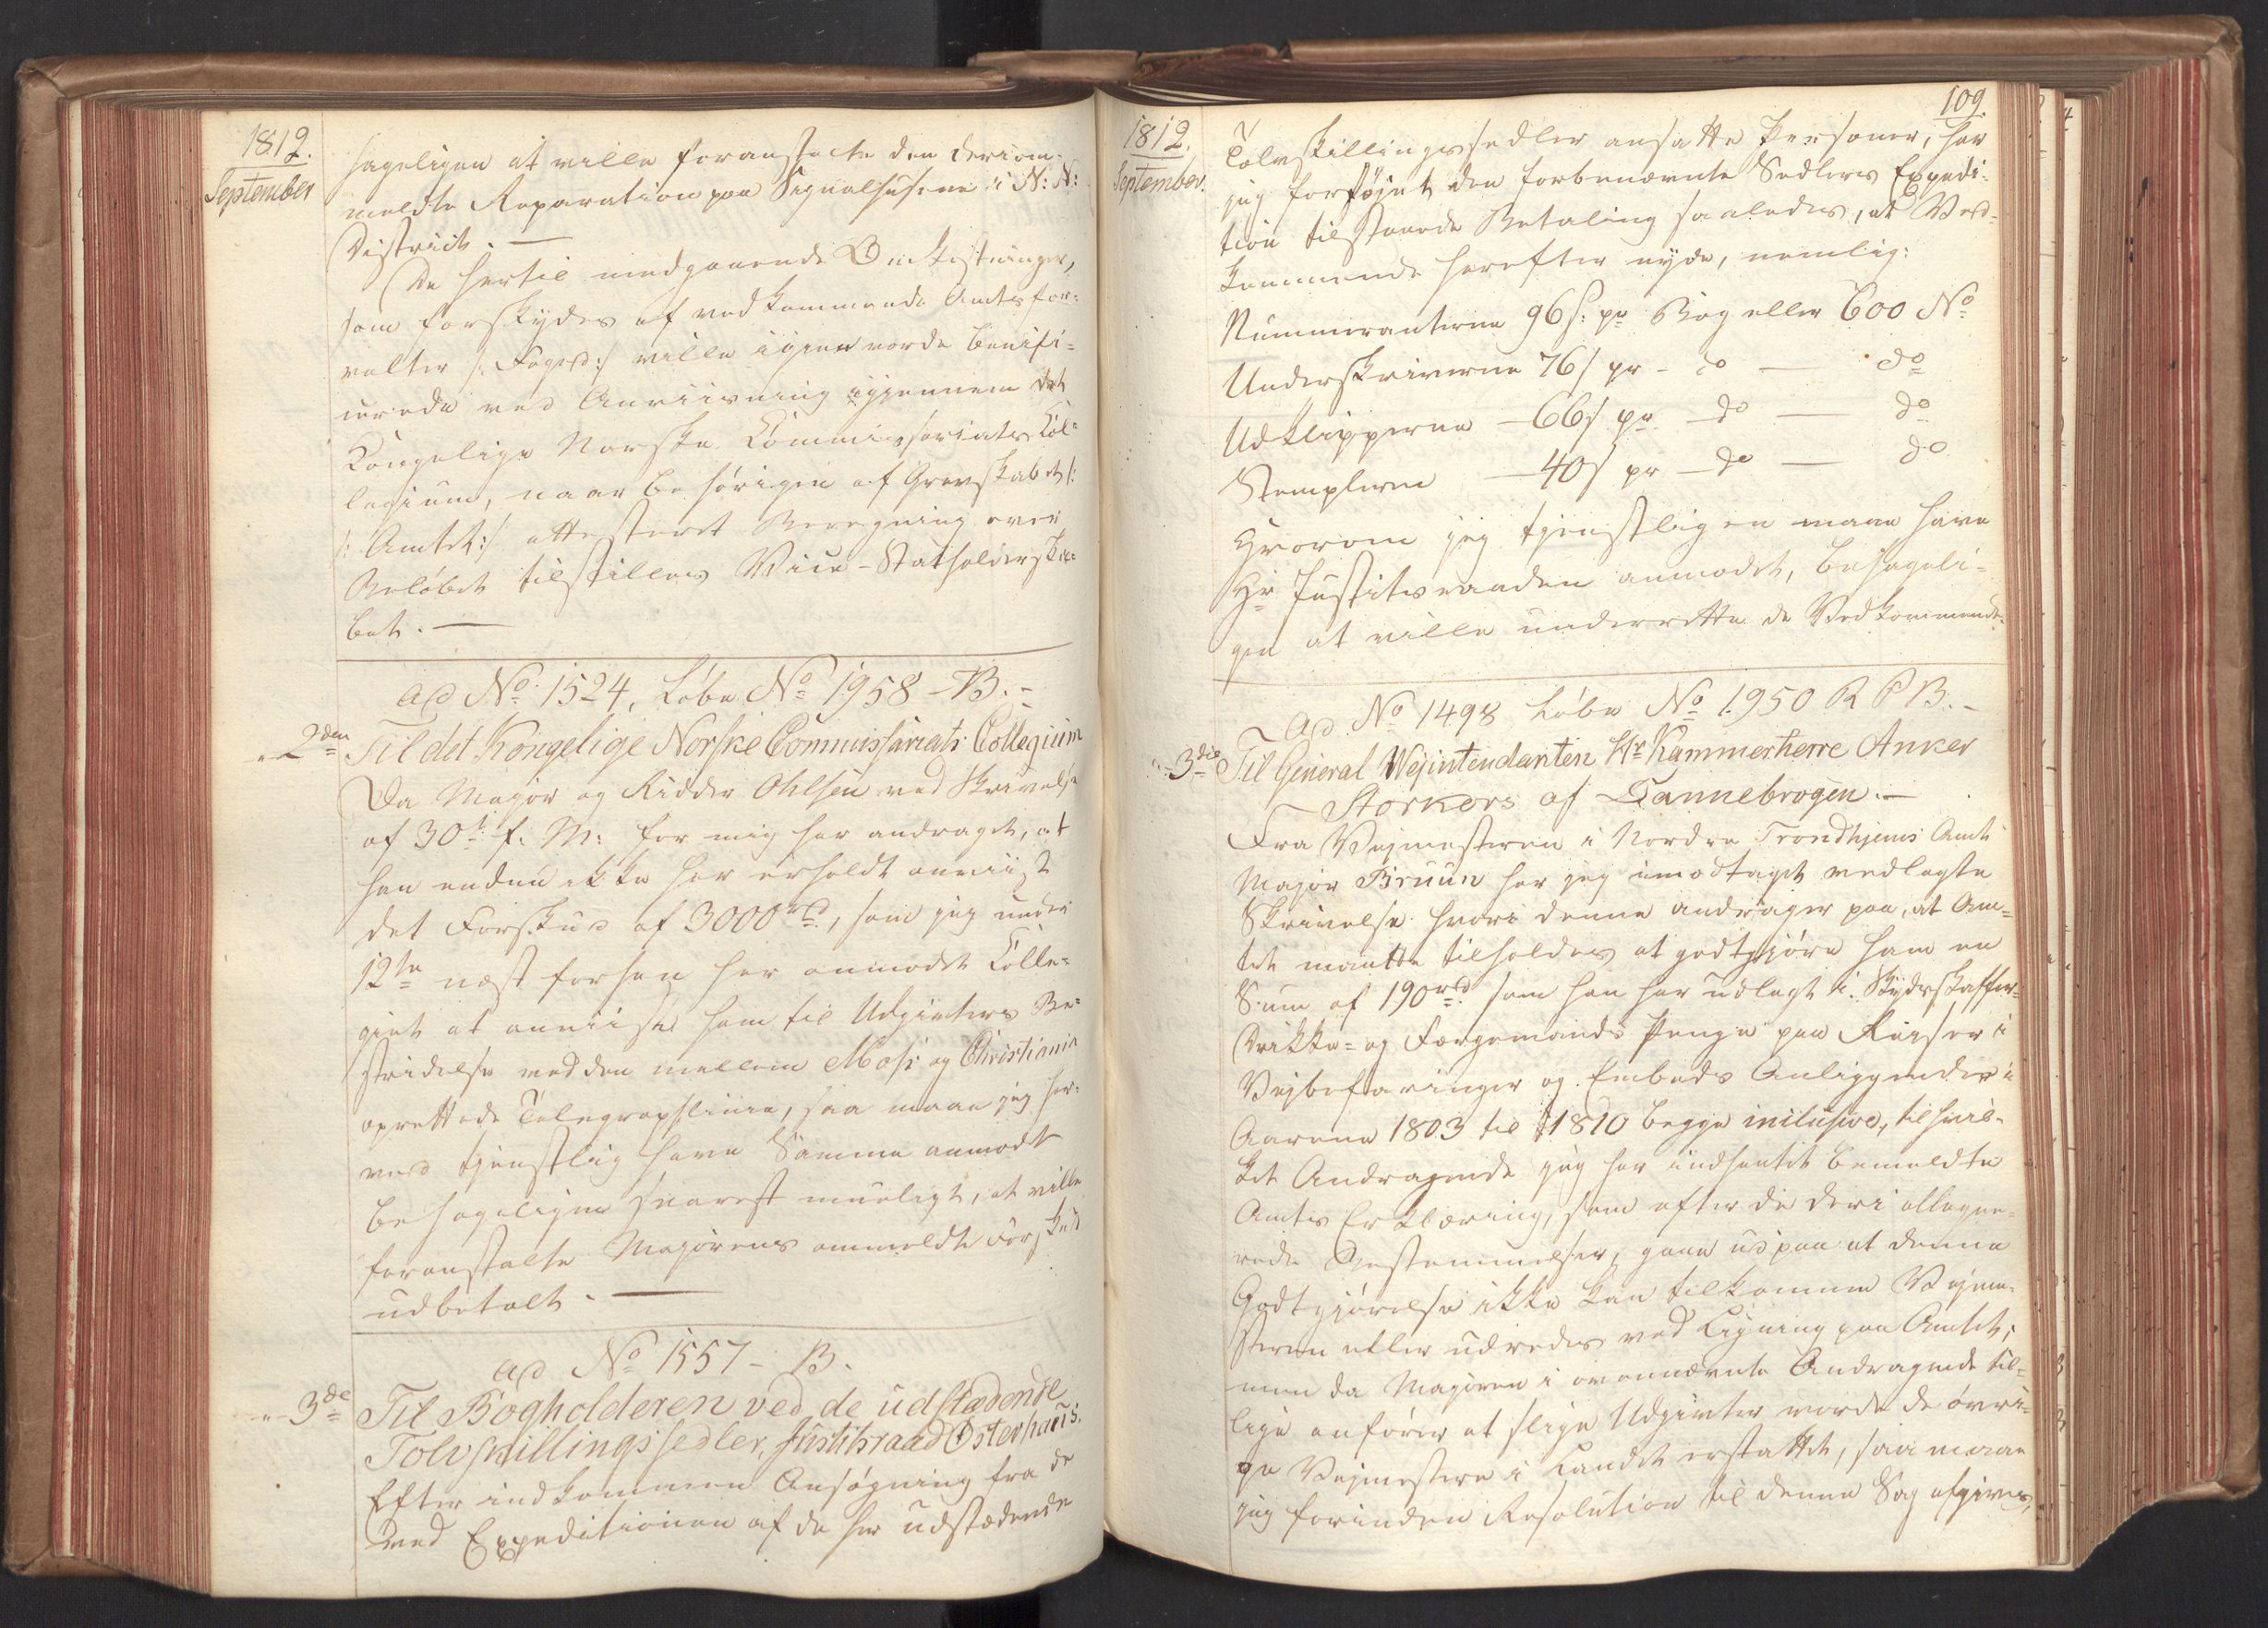 1812.
September
hageligen at ville foranstalte den deriom-
meldte Reparation paa Signalhusene i N: N:
District. —
De hertil medgaaende Omkostninger,
som forskydes af vedkommende Amtsfor-
valter /: Foged :/ ville igien vorde benifi-
cerede ved Anviisning igjennem det
Kongelige Norske Commissariats Col-
legium, naar behørigen af Grevskabet /:
/: Amtet :/ attesteret Beregning over
Beløbet tilstilles Vice-Statholderska-
bet. —
ad No 1524, Løbe No 1958 - B. -
2den Til det Kongelige Norske Commissariats Collegium
Da Major og Ridder Ohlsen ved Skrivelse
af 30te f: M: for mig har andraget, at
han endnu ikke har erholdt anviist
det Forskud af 3000 rd, som jeg under
12te næst forhen har anmodet Colle-
giet at anviise ham til Udgivters Be-
stridelse ved den mellem Moss og Christiania
oprettede Telegraphlinie, saa maae jeg her-
ved tjenstlig have Samme anmodt
behageligen snarest mueligt, at ville
foranstalte Majorens ommeldte Forskud
udbetalt. —
ad No 1557 - B.
3de Til Bogholderen ved de udstædende
Tolvskillingssedler, Justitsraad Osterhaus.
Efter indkommen Ansøgning fra de
ved Expeditionen af de her udstædende
109
1812.
September.
Tolvskillingssedler ansatte Personer, har
jeg forhøjet den forbenævnte Sedlers Expedi-
tion tilstaaede Betaling saaledes, at Ved-
kommende herefter nyde, nemlig:
Nummeranterne 96 s: pr Bog eller 600 No
Underskriverne 76 s pr - do — do
Udklipperne — 66 s pr — do — do
Stemplerne — 40 s pr — do — do
Hvorom jeg tjenstligen maae have
Hr Justitsraaden anmodet, behageli-
gen at ville underrette de Vedkommende.
Ad No 1498 Løbe No 1950 R P B. -
3die Til General Wejintendanten Hr Kammerherre Anker
Storkors af Dannebrogen. —
Fra Vejmesteren i Nordre Trondhjems Amt
Major Bruun har jeg imodtaget vedlagte
Skrivelse hvori denne andrager paa, at Am-
tet maatte tilholdes at godtgjøre ham en
Sum af 190 rd som han har udlagt i Skydsskaffer-
Drikke- og Færgemands Penge paa Reiser i
Vejbefaringer og Embeds Anliggender i
Aarene 1803 til 1810 begge inclusive, til hvil-
ket Andragende jeg har indhentet bemeldte
Amts Erklæring, som efter de deri allegue-
rede Bestemmelser, gaae ud paa at denne
Godtgjørelse ikke kan tilkomme Vejme-
steren eller udredes ved Ligning paa Amtet;
men da Majoren i ovennævnte Andragende til-
lige anfører at slige Udgivter vorde de øvri-
ge Vejmestere i Landet erstattet, saa maae
jeg forinden Resolution til denne Sag afgives,